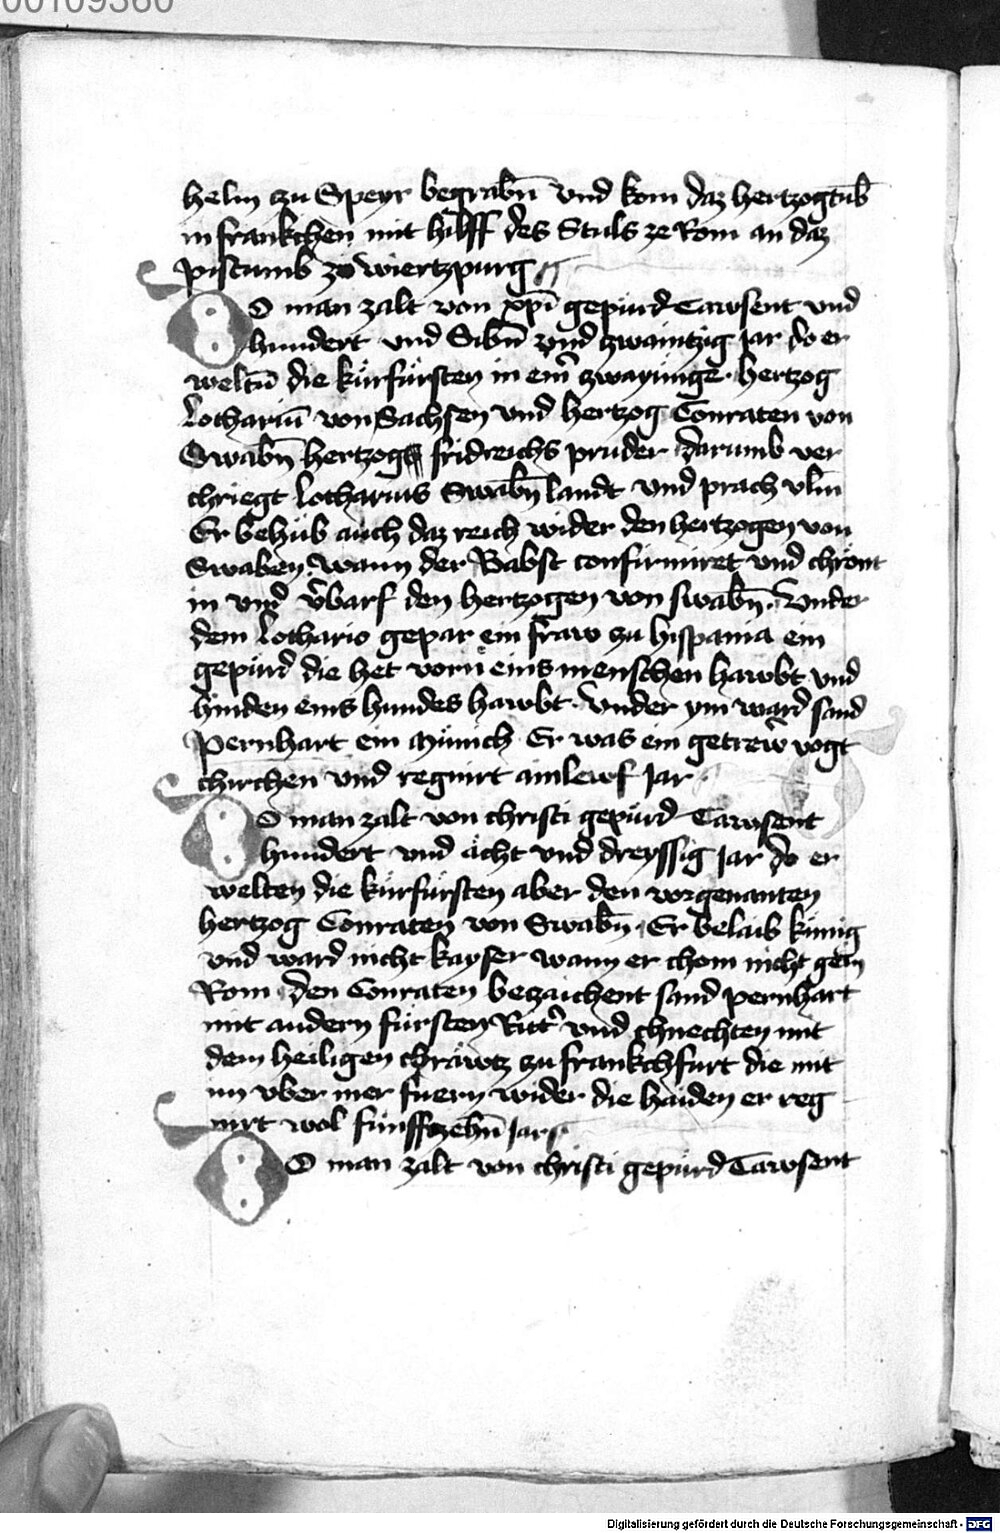 00109360
helm zu Speyr begrabn̄ vnd kom daz hertzogtūb
in frankchen mit hilff des Stuls ze Rom an daz
pistumb zu wiertzpurg
DO man zalt von xp̄i gepürd Tawsent vnd
hundert vnd Sibn̄ vnd zwaintzig jar do er
weltn̄ die kürfürsten in ein͛ zwayünge · hertzog
Lothariū von Sachsen vnd hertzog Conraten von
Swabn̄ hertzogs fridreichs pruder darumb ver
chriegt Lotharius Swabn̄ landt vnd prach vlm
Er behüb auch daz reich wider den hertzogen von
Swaben wann der Babst confirmiret vnd chrönt
in vnd v͛barf den hertzogen von swabn̄ · Vnder
dem Lothario gepar ein fraw zu hispania ein
gepürd die het vorn eins menschen hawbt vnd
hinden eins hundes hawbt · Vnder ym ward sand
Pernhart ein münich Er was ein getrew͛ vogt
chirchen vnd regnirt ainlewf jar ·
DO man zalt von christi gepürd Tawsent
hundert vnd ächt vnd dreyssig jar do er
welten die kürfürsten aber den vorgenanten
hertzog Conraten von Swabn̄ · Er belaib künig
vnd ward nicht kayser wann er chom nicht gen
Rom den Conraten betzaichent sand pernhart
mit andern fürsten Ritt͛ vnd chnechten mit
dem heiligen chräwtz zu frankchfurt die mit
im vber mer fuern wider die haiden er reg
nirt wol fünffzehn̄ jar
DO man zalt von christi gepürd Tawsent
Digitalisierung gefördert durch die Deutsche Forschungsgemeinschaft - DFG